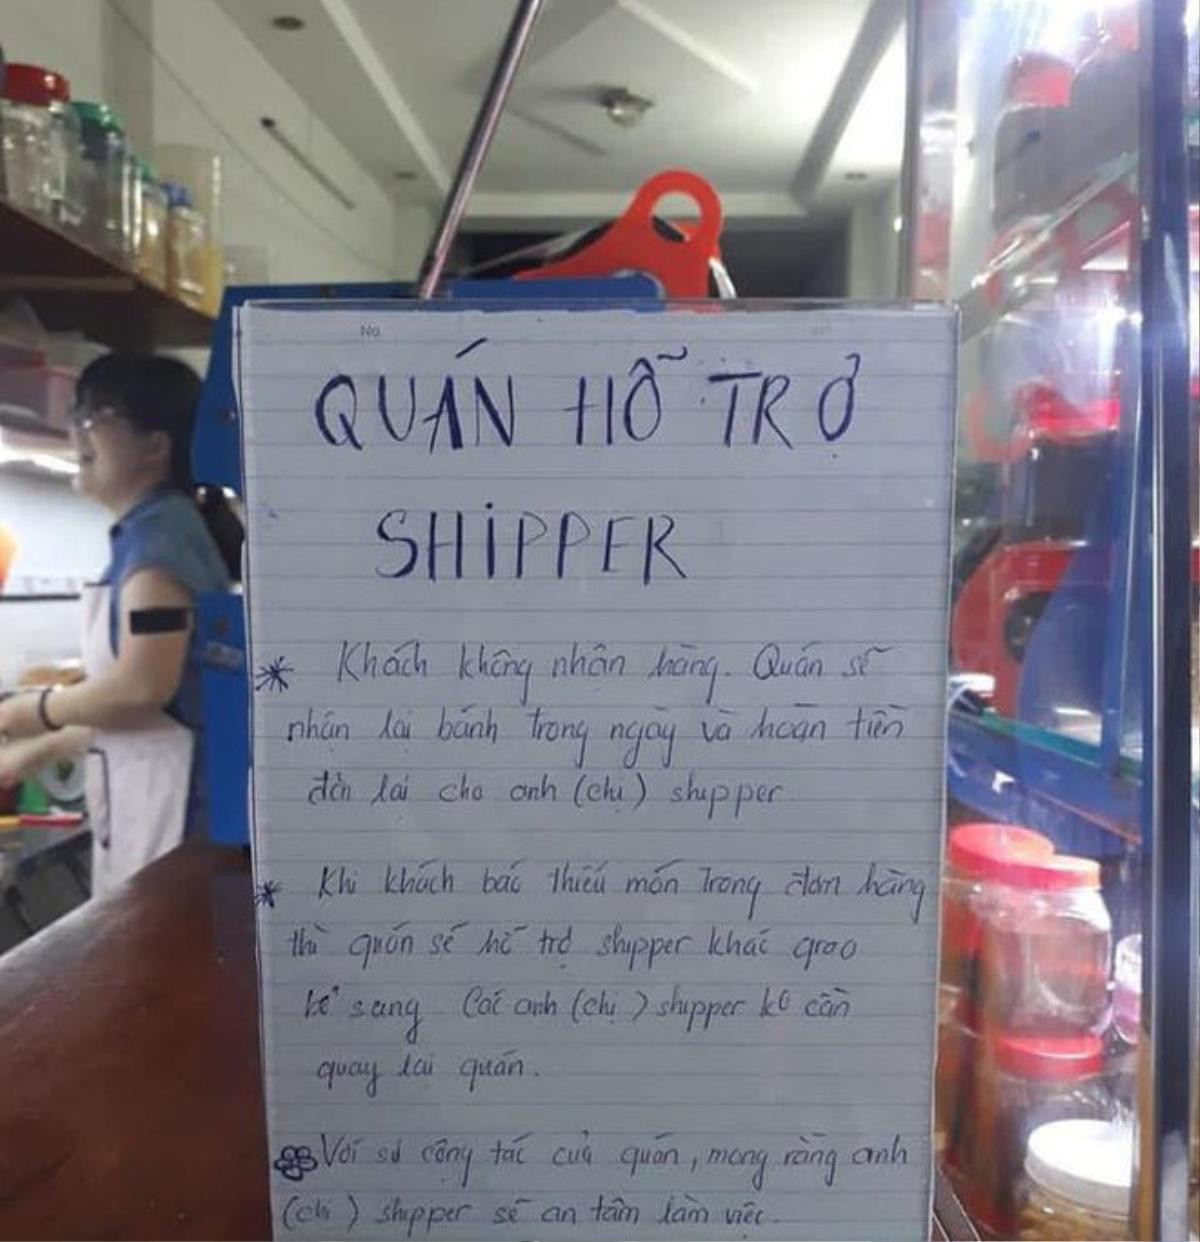 No.
QUÁN HỖ TRỢ
SHIPPER
Khách không nhận hàng. Quán sẽ
nhận lại bánh trong ngày và hoàn tiền
lại cho anh (chị) shipper
Khi khách báo thiếu món trong đơn hàng
thì quán sẽ hỗ trợ shipper khác giao
sang. Các anh (chị) shipper ko cần
quay lại quán.
Với sự cộng tác của quán, mong rằng anh
(chị) shipper sẽ an tâm làm việc.